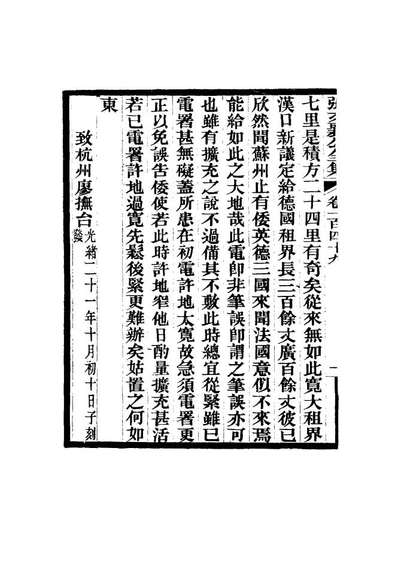 張文襄公全集
七里是積方二十四里有奇矣從來無如此寬大租界
漢口新議定給德國租界長三百餘丈廣百餘丈彼已
欣然聞蘇州止有倭英德三國來聞法國意似不來焉
能給如此之大地哉此電卽非筆誤卽謂之筆誤亦可
也雖有擴充之說不過備其不敷此時總宜從緊雖已
電署甚無礙蓋所患在初電許地太寬故急須電署更
正以免誤荅倭使若此時許地窄他日酌量擴充甚活
若已電署許地過寬先鬆後緊更難辦矣姑置之何如
東
致杭州廖撫台光緒二十一年十月初十日子刻發